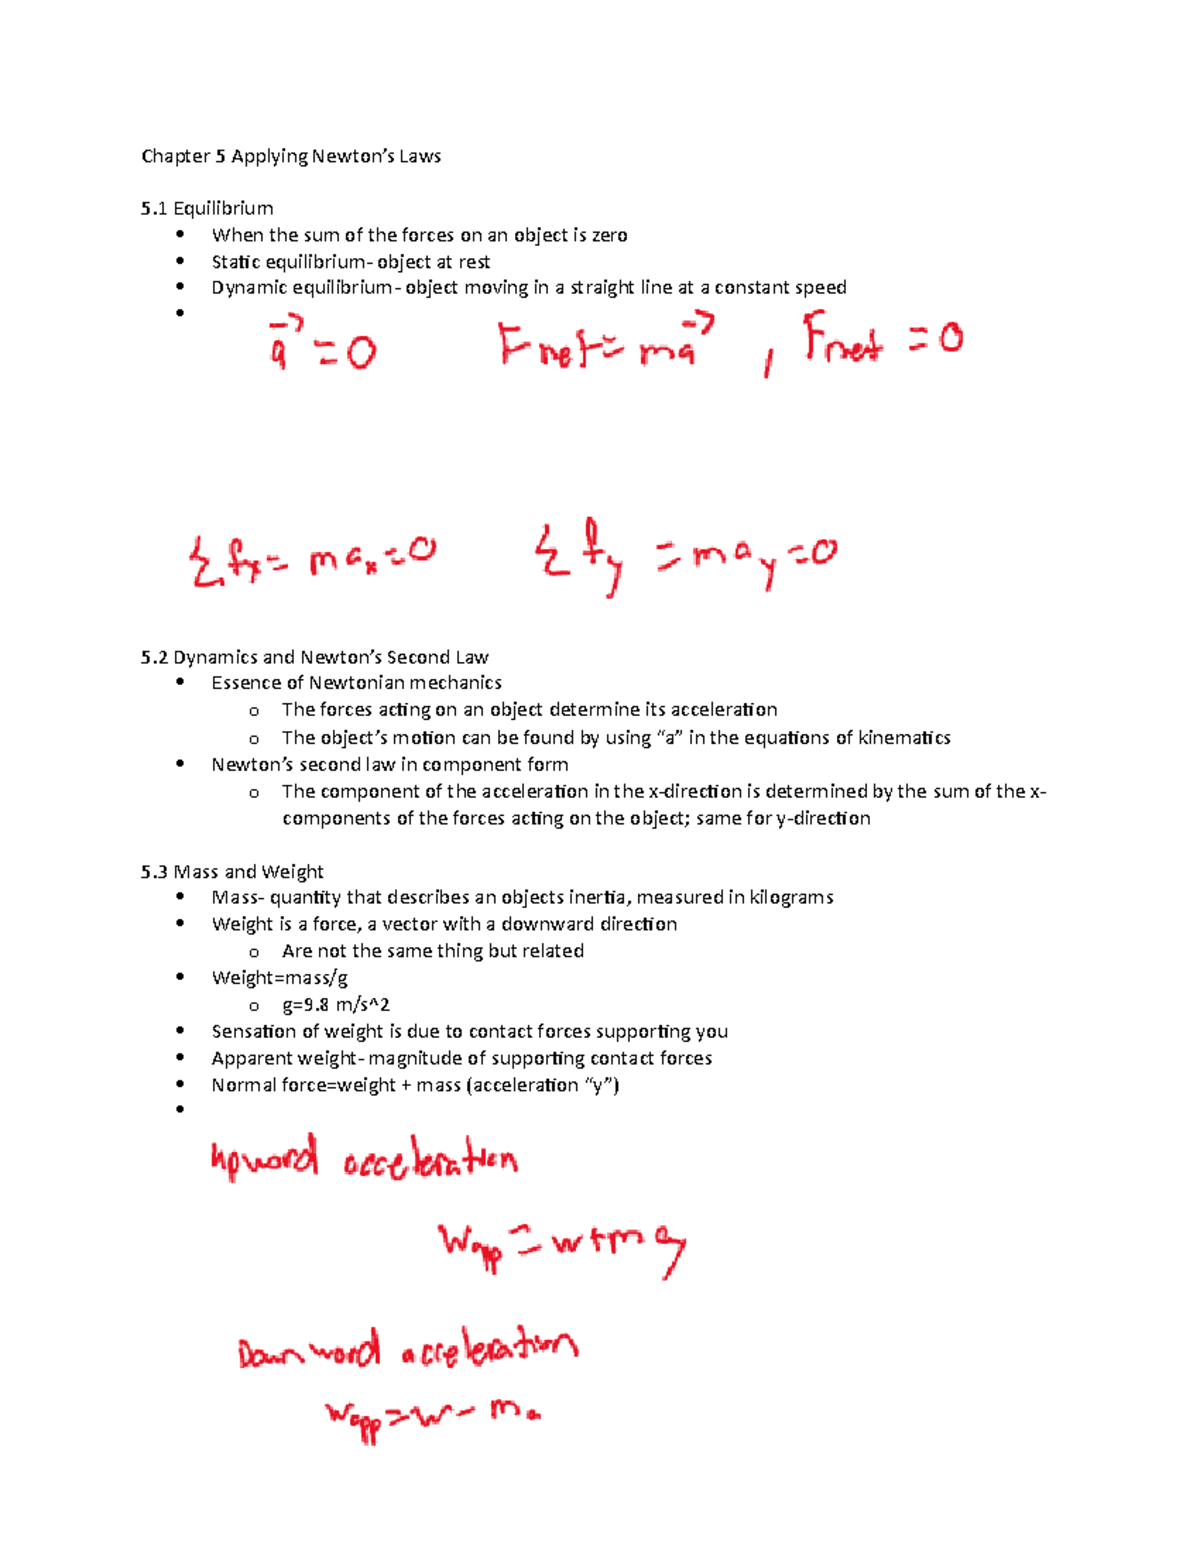 Chapter 5 Applying Newton’s Laws
5.1 Equilibrium
• When the sum of the forces on an object is zero
• Static equilibrium- object at rest
• Dynamic equilibrium- object moving in a straight line at a constant speed
•
a⃗ = 0 Fnet = ma⃗ , Fnet = 0
Σfx = max = 0 Σfy = may = 0
5.2 Dynamics and Newton’s Second Law
• Essence of Newtonian mechanics
o The forces acting on an object determine its acceleration
o The object’s motion can be found by using “a” in the equations of kinematics
• Newton’s second law in component form
o The component of the acceleration in the x-direction is determined by the sum of the x-
components of the forces acting on the object; same for y-direction
5.3 Mass and Weight
• Mass- quantity that describes an objects inertia, measured in kilograms
• Weight is a force, a vector with a downward direction
o Are not the same thing but related
• Weight=mass/g
o g=9.8 m/s^2
• Sensation of weight is due to contact forces supporting you
• Apparent weight- magnitude of supporting contact forces
• Normal force=weight + mass (acceleration “y”)
•
Upward acceleration
Wapp = w + may
Downward acceleration
Wapp = w - ma